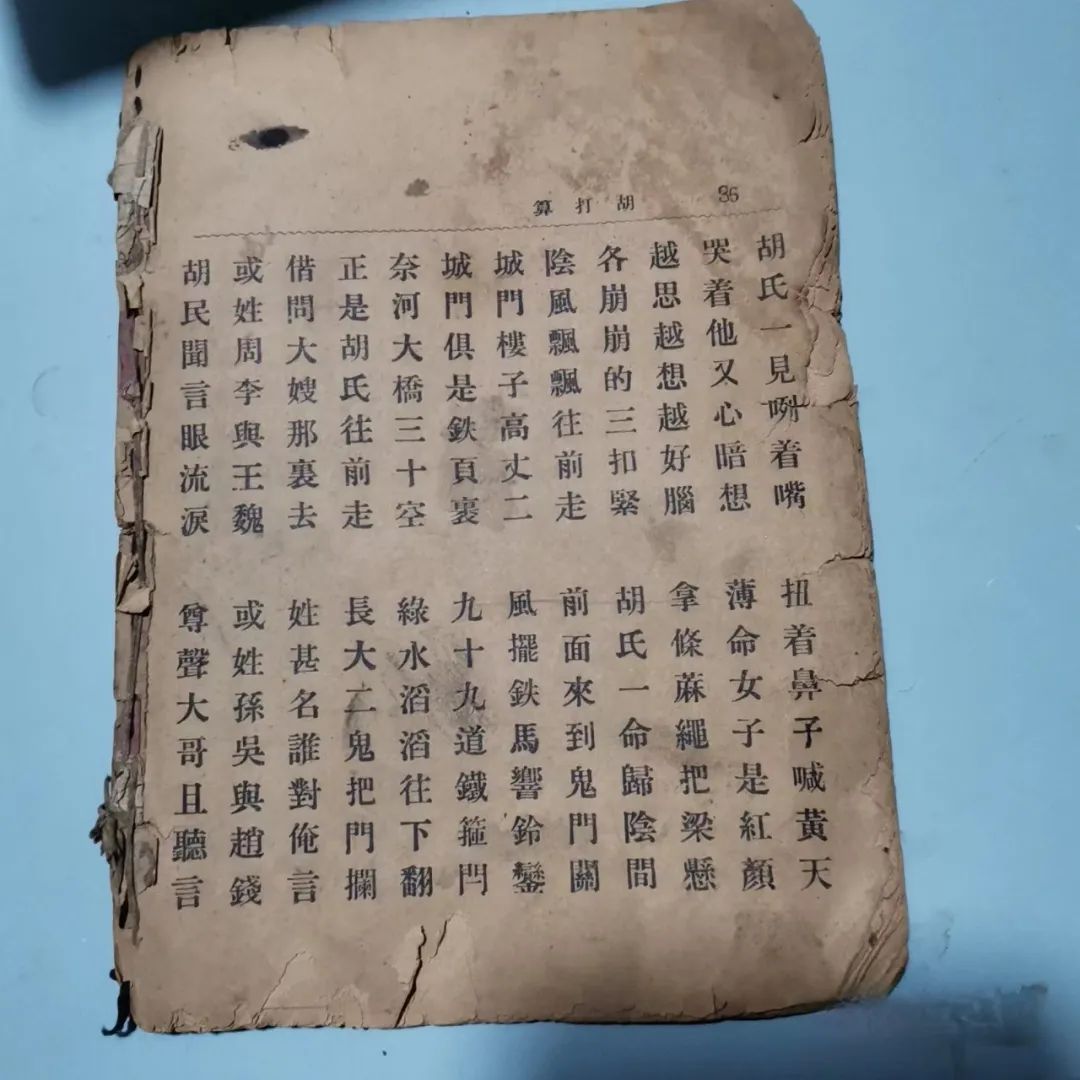 36
胡打算
胡氏一見咧着嘴 扭着鼻子喊黃天
哭着他又心暗想 薄命女子是紅顏
越思越想越好腦 拿條蔴繩把梁懸
各崩崩的三扣緊 胡氏一命歸陰間
陰風飄飄往前走 前面來到鬼門關
城門樓子高丈二 風擺鉄馬響鈴鑾
城門俱是鉄頁裹 九十九道鐵箍閂
奈河大橋三十空 綠水滔滔往下翻
正是胡氏往前走 長大二鬼把門攔
借問大嫂那裏去 姓甚名誰對俺言
或姓周李與王魏 或姓孫吳與趙錢
胡民聞言眼流淚 尊聲大哥且聽言